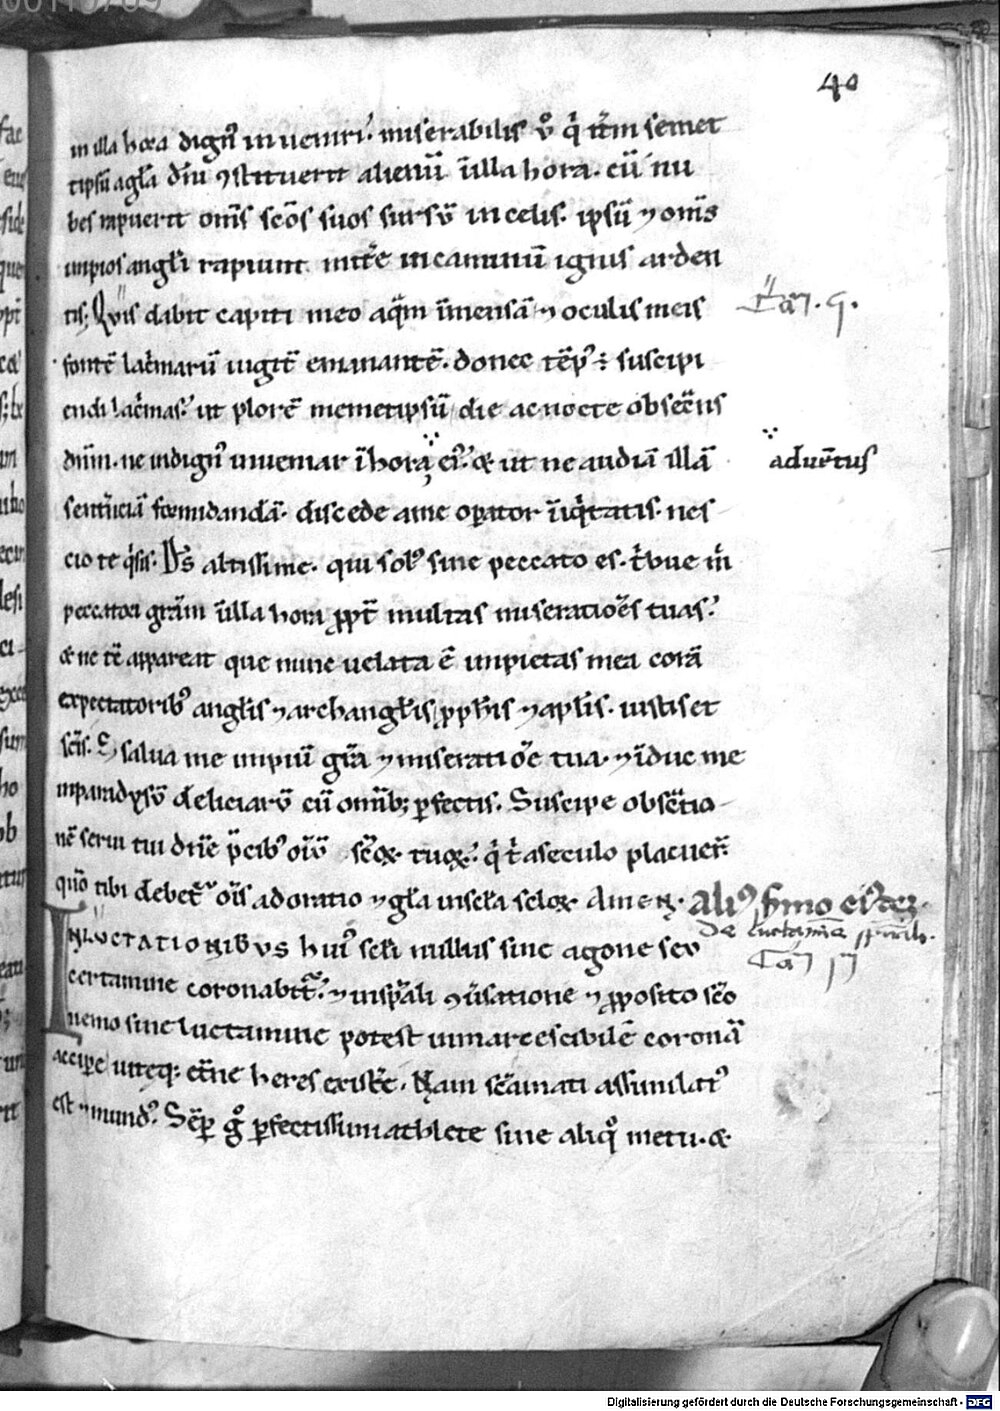 40
in illa hora dign᷒ inueniri. miserabilis v̊ q̇ itm̄ semet
tipsū a gl̄a dn̄i ꝯstituerit alienū ī illa hora. cū nu
bes rapuerit om̄s sc̄os suos sursū in celis. ipsū ⁊ om̄s
impios angl̄i rapiunt mitt̄e in caminū ignis arden
tis; Quis dabit capiti meo aq̄m īmensā ⁊ oculis meis
fontē lac̄marū iugit̄ emanantē. donec tēp᷒ ÷ suscipi
endi lac̄mas. ut plorē memetipsū die ac nocte obsec̄ns
dn̄m. ne indign᷒ inueniar ī hora ei᷒. & ut ne audiā illā
adūetus
sentn̄ciā formidandā. discede a me oꝑator iniq̇tatis. nes
cio te q̇ sis. D̄s altissime. qui sol᷒ sine peccato es. t̄bue m̄
peccatori grām ī illa hora ꝓpt̄ multas miseratiōes tuas.
& ne tē appareat que nunc uelata ē impietas mea corā
expectatorib᷒ angl̄is ⁊ archangl̄is ꝓph̄is ⁊ apl̄is. iustis et
sc̄is. S; salua me impiū gr̄a ⁊ miseratiōe tua. ⁊ īduc me
in paradysū deliciarū cū omīb; ꝑfectis. Suscipe obsēc̄tio
nē serui tui dn̄e p̄cib᷒ oīū sc̄oꝝ tuoꝝ. q̇ t̄ a seculo placuer̄
quō tibi debet᷒ oīs adoratio ⁊ gl̄a in sc̄la sc̄loꝝ. Amen. Ali᷒ s̄mo ei᷒dē.
IN LUCTATIONIBVS hui᷒ sc̄li nullus sine agone seu
certamine coronabit᷒. ⁊ in sp̄ali ꝯūsatione ⁊ ꝓposito sc̄o
nemo sine luctamine potest inmarcescibilē coronā
accipe uiteq; et̄ne heres existe. Nam sc̄aminati assimilat᷒
est ⁊ mund᷒. Sēꝑ g̊ ꝑfectissimi athlete sine aliq̊ metu. &